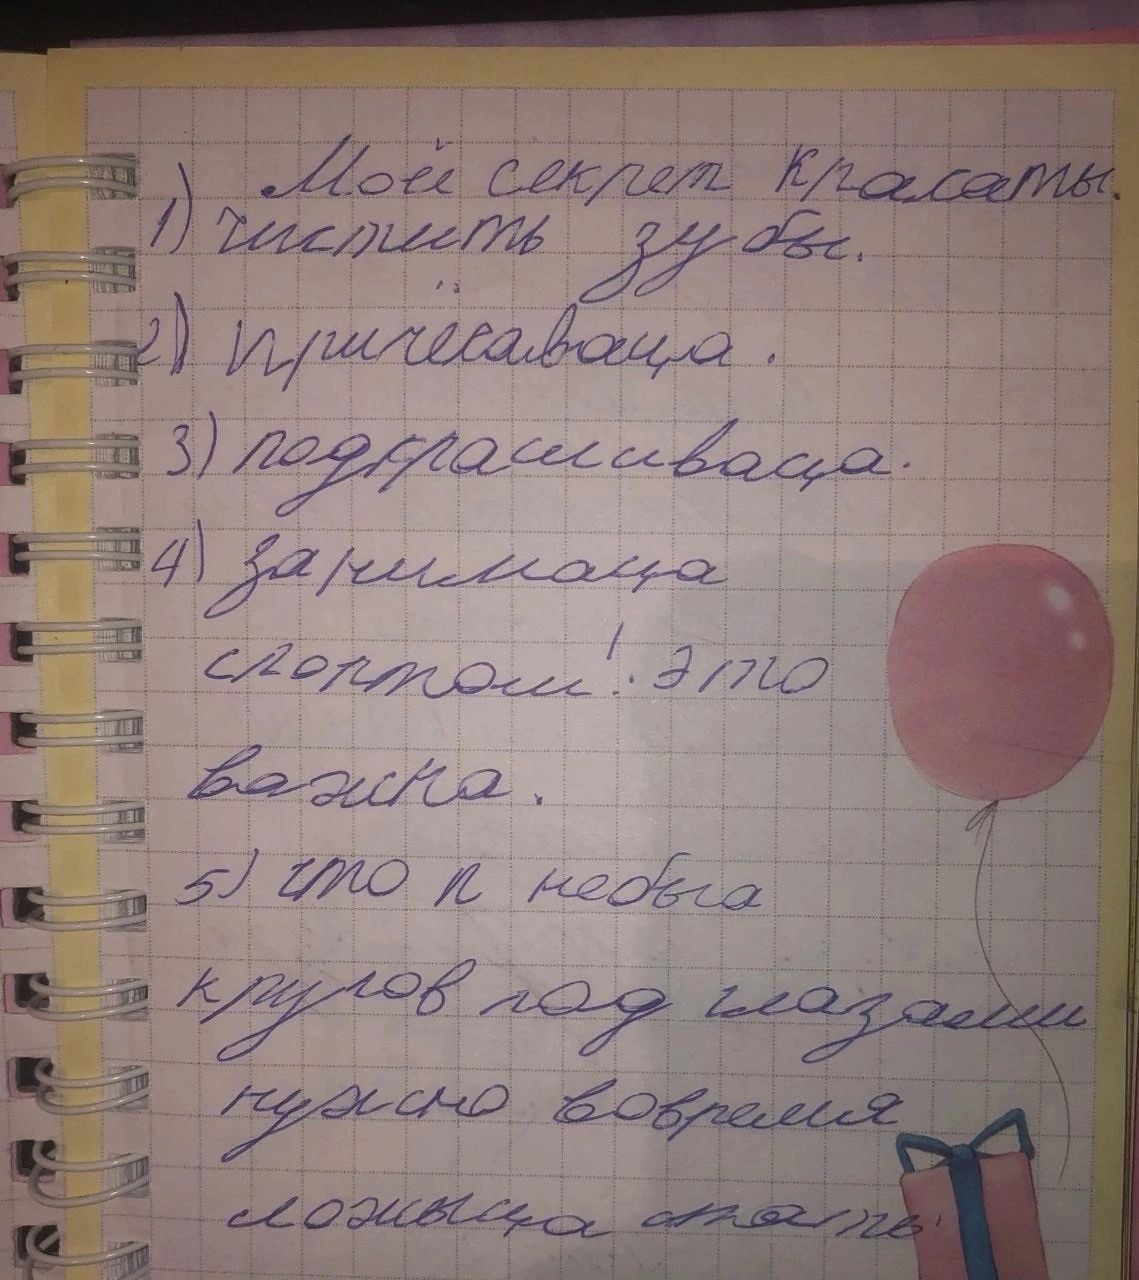 Мой секрет красаты.
1) чистить зубы.
2) причёсаваца.
3) подкрашиваца.
4) занимаца
спортом! это
важна.
5) что п небыла
кругов под глазами
нужно вовремя
ложыца спать